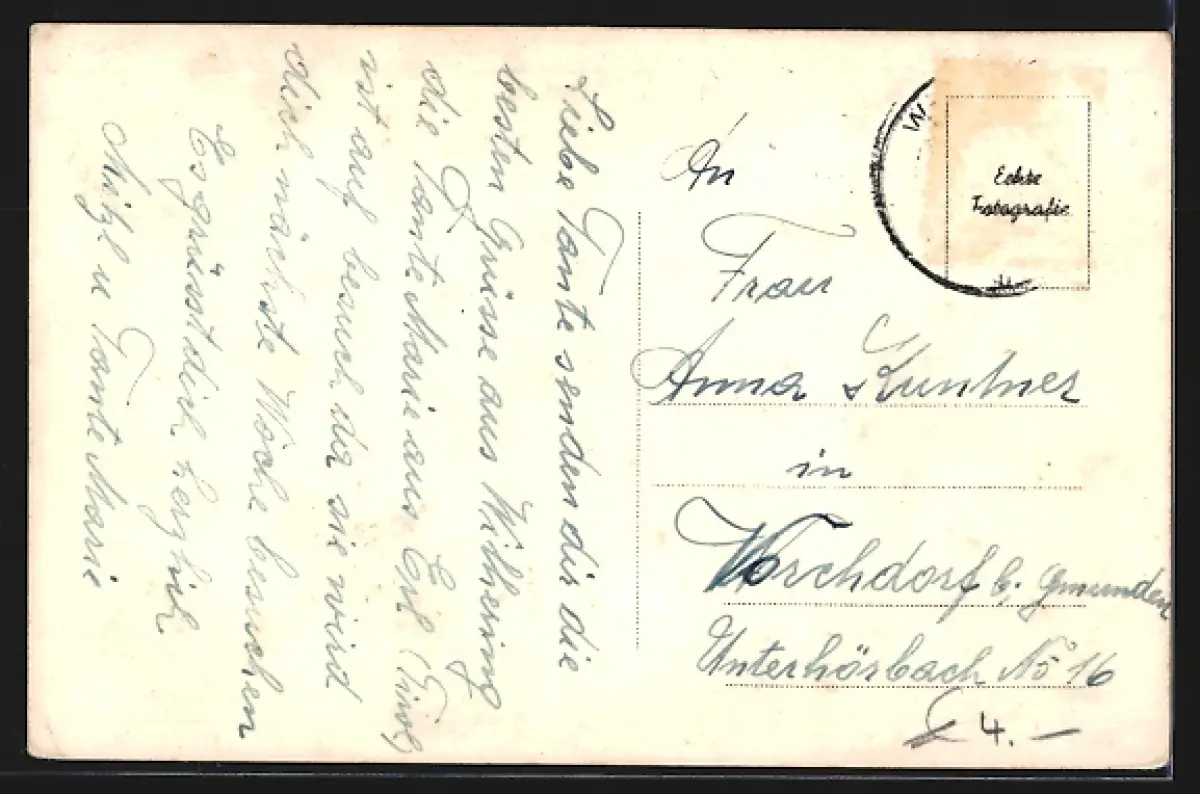 Liebe Tante senden dir die
besten Grüsse aus Wilhering
die Tante Marie aus Tirol
ist auf besuch da sie wird
dich nächste Woche besuchen
Es grüsst dich herzlich
Mitzl u Tante Marie
W
Echte
Fotografie
An
Frau
Anna
in
Vorchdorf b. Gmunden
Unterhörbach No 16
4.–